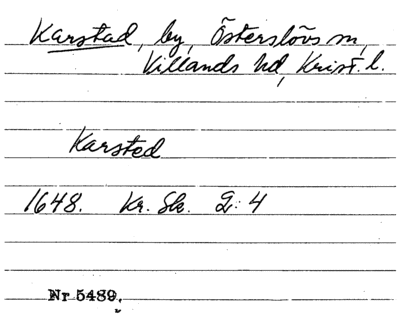 Karstad, by, Österslövs sn,
Villands hd, Krist. l.
Karsted
1648. Kr. Sk. 2:4
Nr 5489.